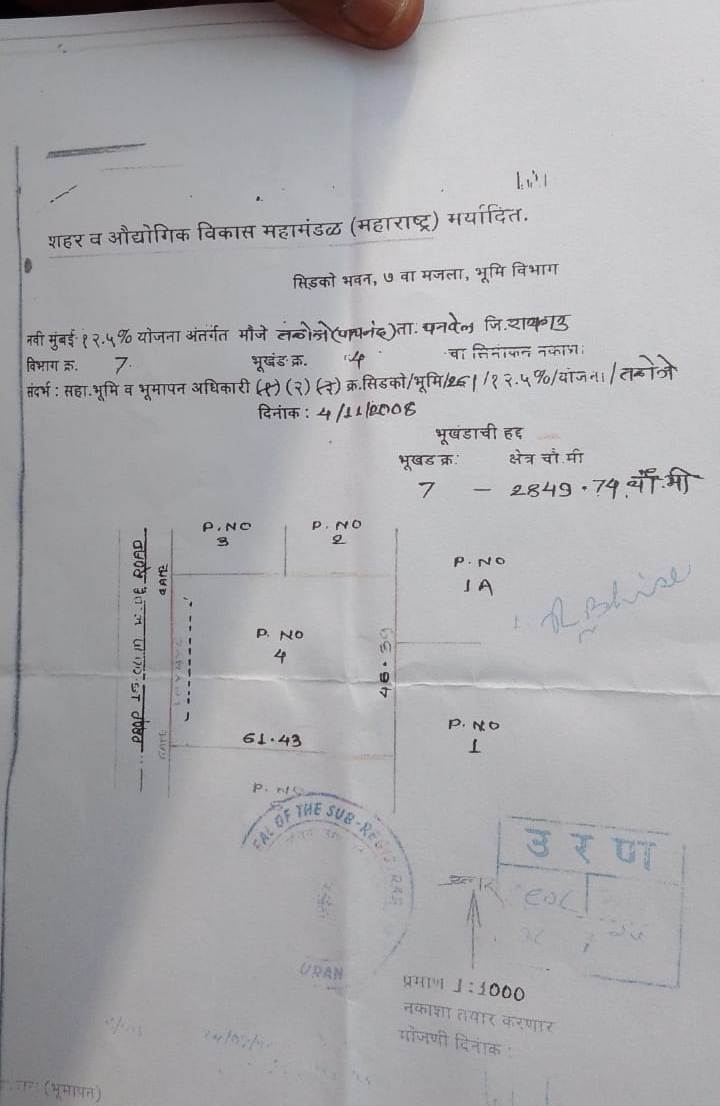 शहर व औद्योगिक विकास महामंडळ (महाराष्ट्र) मर्यादित.
सिडको भवन, ७ वा मजला, भूमि विभाग
नवी मुंबई १२.५% योजना अंतर्गत मौजे तळोजे (पाचनंद) ता. पनवेल जि. रायगड
विभाग क्र. 7. भूखंड क्र. 4 चा सिमांकन नकाशा:
संदर्भ : सहा. भूमि व भूमापन अधिकारी (१) (२) (३) क्र. सिडको/भूमि/261/१२.५%/योजना/तळोजे
दिनांक : 4/11/2008
भूखंडाची हद्द
भूखंड क्र: क्षेत्र चौ.मी
7 - 2849.74 चौ.मी
P. NO 3
P. NO 2
P. NO 1A
P. NO 4
46.39
P. NO 1
61.43
P. NO
SEAL OF THE SUB-REGISTRAR
URAN
उरण
उत्तर
प्रमाण 1:1000
नकाशा तयार करणार
मोजणी दिनांक :
(भूमापन)